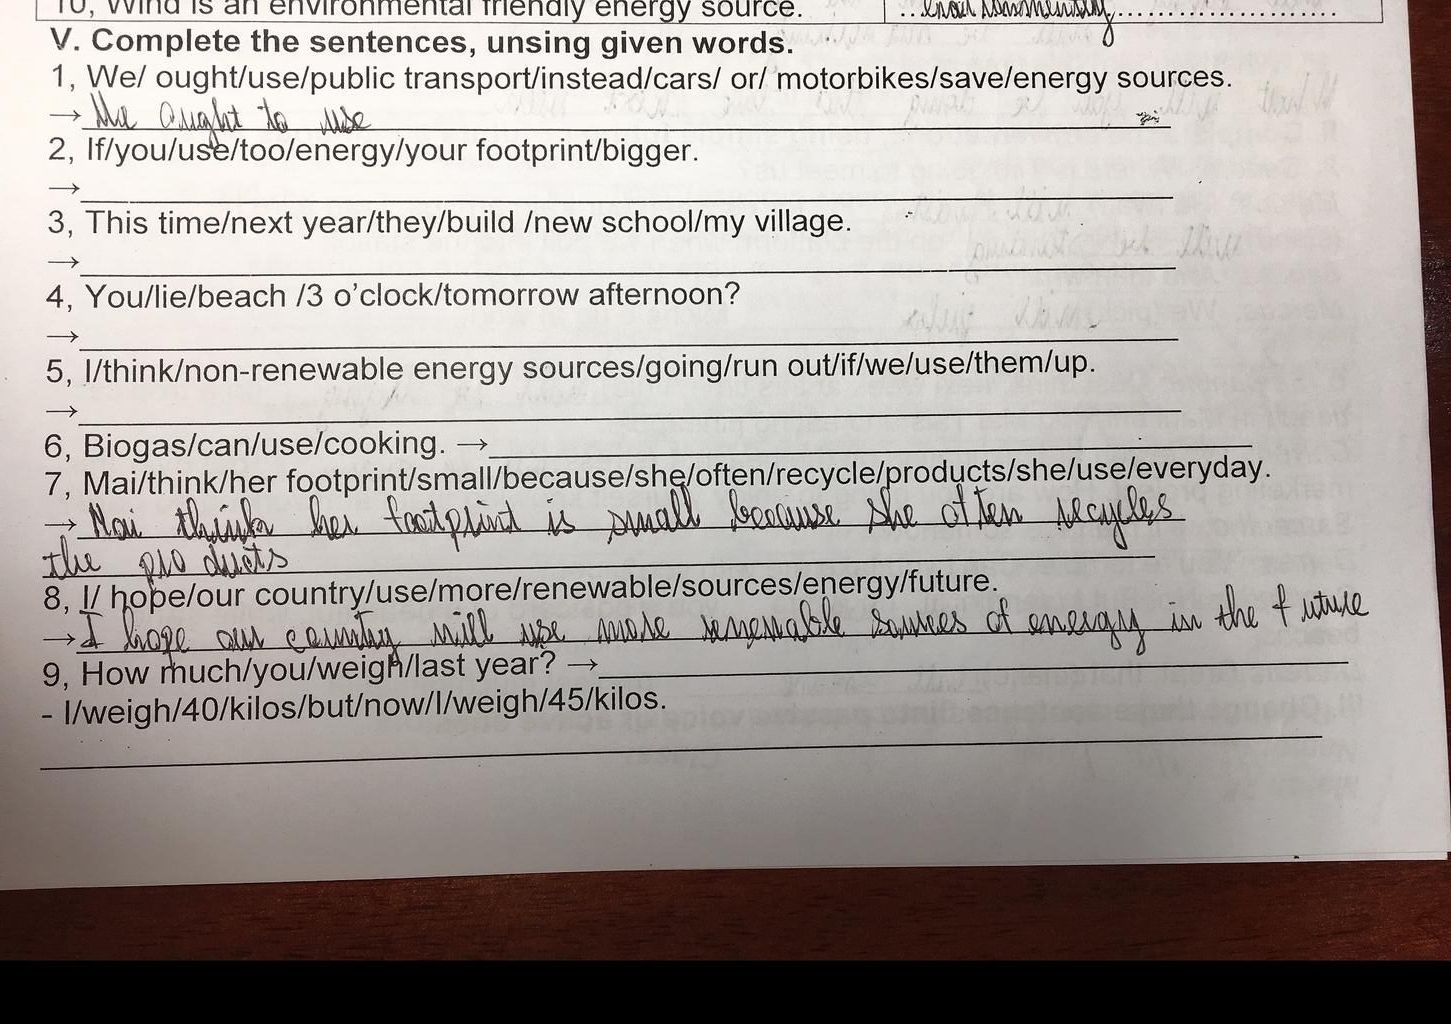 10, Wind is an environmental friendly energy source.
V. Complete the sentences, unsing given words.
1, We/ ought/use/public transport/instead/cars/ or/ motorbikes/save/energy sources.
→ We ought to use
2, If/you/use/too/energy/your footprint/bigger.
→
3, This time/next year/they/build /new school/my village.
→
4, You/lie/beach /3 o'clock/tomorrow afternoon?
→
5, I/think/non-renewable energy sources/going/run out/if/we/use/them/up.
→
6, Biogas/can/use/cooking. →
7, Mai/think/her footprint/small/because/she/often/recycle/products/she/use/everyday.
→ Mai thinks her footprint is small because she often recycles
the products
8, I/ hope/our country/use/more/renewable/sources/energy/future.
→ I hope our country will use more renewable sources of energy in the future
9, How much/you/weigh/last year? →
- I/weigh/40/kilos/but/now/I/weigh/45/kilos.